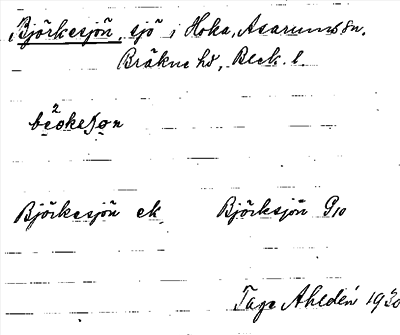 Björkesjön, sjö i Hoka, Asarums sn.
Bräkne hd, Blek. l.
Björkesjön ek. Björksjön G10
Tage Ahldén 1930